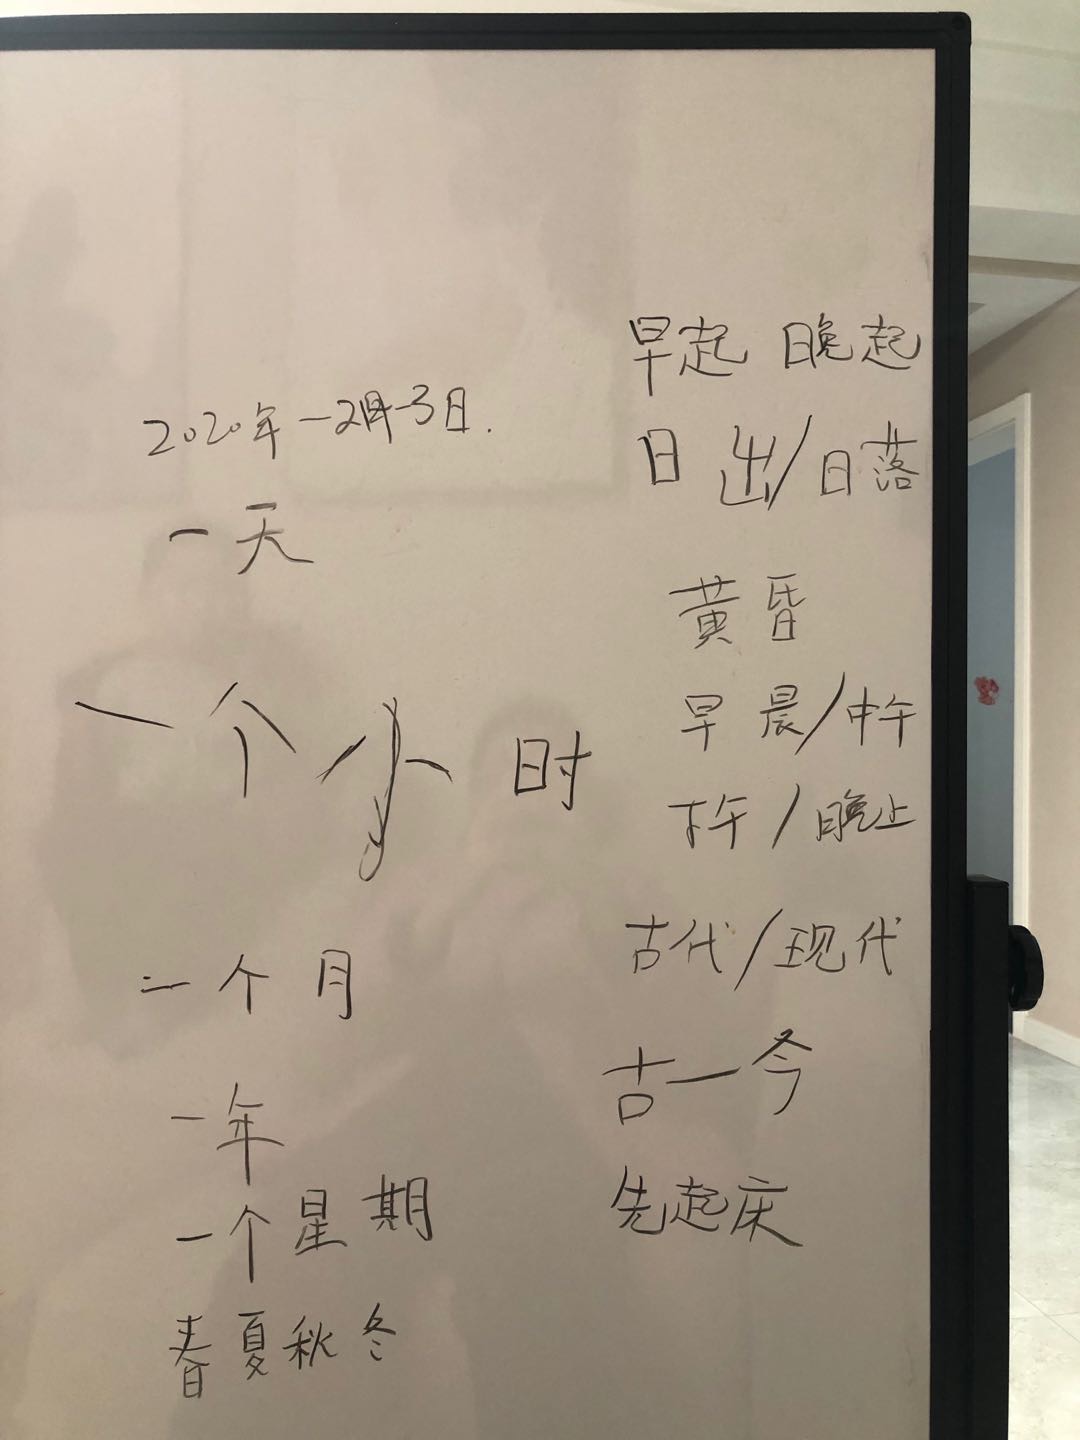 2020年-2月-3日.
一天
一个小时
一个月
一年
一个星期
春夏秋冬
早起 晚起
日出/日落
黄昏
早晨/中午
下午/晚上
古代/现代
古一今
先起床